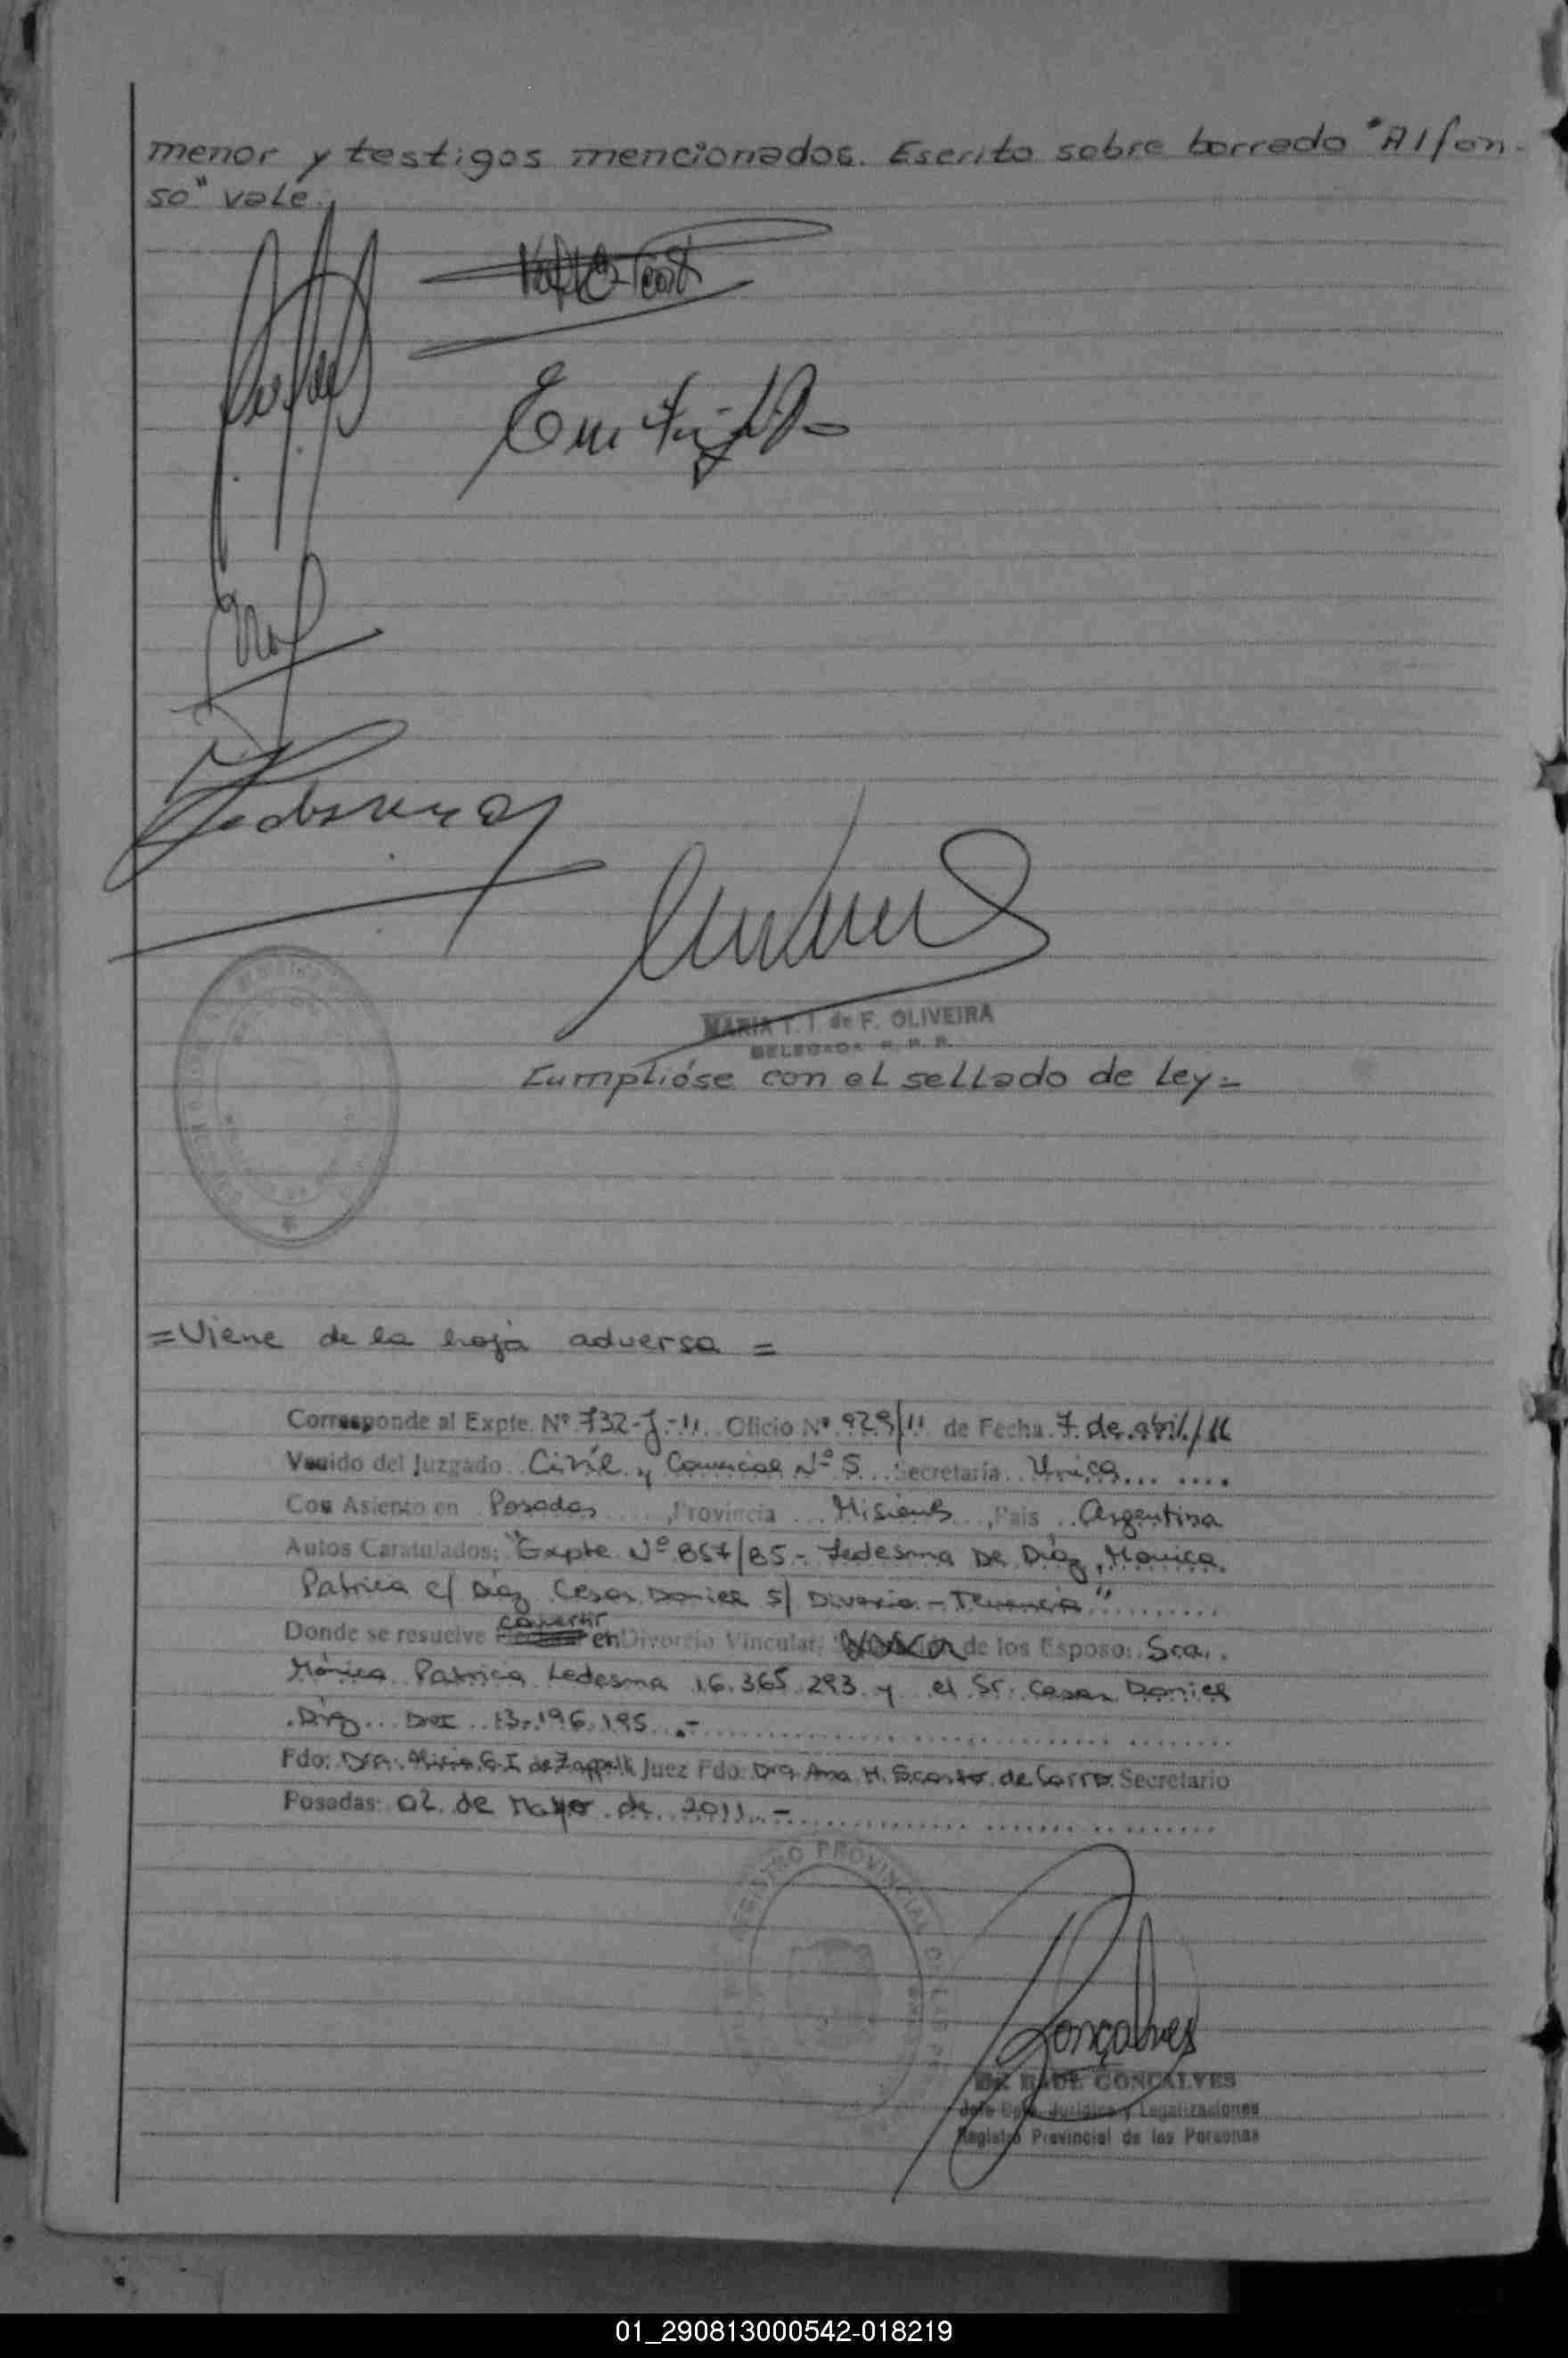 menor y testigos mencionados. Escrito sobre borrado "Alfon-
so" vale.
MARIA T. I. de F. OLIVEIRA
DELEGADA R. P. P.
Cumplióse con el sellado de Ley=
=Viene de la hoja adversa=
Corresponde al Expte. Nº 732-J-11 Oficio Nº 929/11 de Fecha 7 de abril/11
Venido del Juzgado Civil y Comercial Nº 5 Secretaría Unica
Con Asiento en Posadas, Provincia Misiones, Pais Argentina
Autos Caratulados: "Expte Nº 857/85.- Ledesma De Díaz, Monica
Patricia c/ Díaz Cesar Daniel s/ Divorcio - Tenencia"
Donde se resuelve convertir en Divorcio Vincular, de los Esposo: Sra.
Mónica Patricia Ledesma 16.365.293 y el Sr. Cesar Daniel
Díaz DNI 13.196.195.-
Fdo: Dra. Alicia G. I. de Zappelli Juez Fdo: Dra Ana H. de Corro Secretario
Posadas: 02 de Mayo de 2011.-
REGISTRO PROVINCIAL DE LAS
Gonçalves
DR. RAUL GONCALVES
Jefe Dpto. Jurídico y Legalizaciones
Registro Provincial de las Personas
01_290813000542-018219